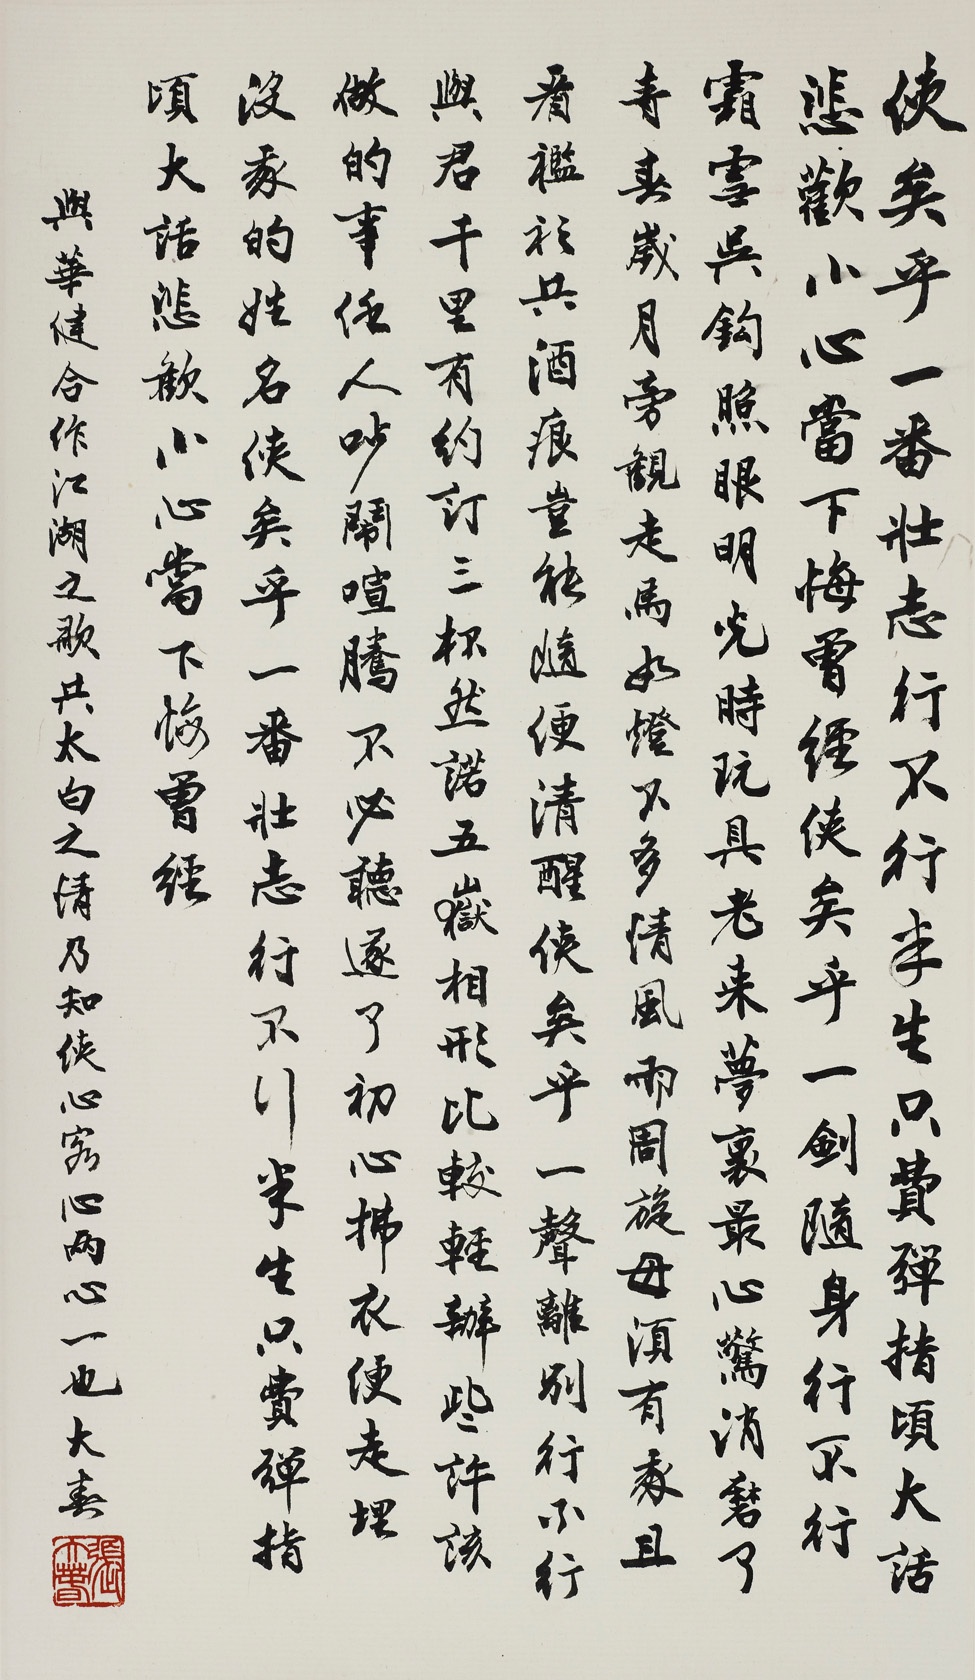 俠矣乎一番壯志行不行半生只費彈指頃大話
悲歡小心當下悔曾經俠矣乎一劍隨身行不行
霜雪吳鈎照眼明光時玩具老来夢裏最心驚消磨了
青春歲月旁觀走馬如燈不多情風雨周旋毋須有豪且
看襤衫共酒痕豈能隨便清醒俠矣乎一聲離別行不行
與君千里有約訂三杯然諾五嶽相形比較輕辦些許該
做的事任人吵鬧喧騰不必聽遂了初心拂衣便走埋
沒豪的姓名俠矣乎一番壯志行不行半生只費彈指
頃大話悲歡小心當下悔曾經
與華健合作江湖之歌共太白之情乃知俠心客心兩心一也大春
張大春